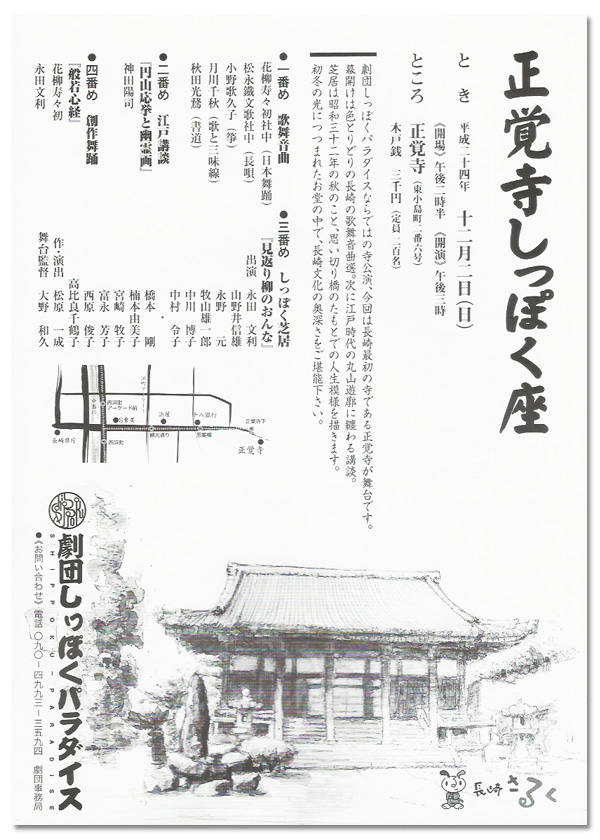 正覚寺しっぽく座
とき 平成二十四年 十二月二日(日)
《開場》午後二時半 《開演》午後三時
ところ 正覚寺(東小島町二番六号)
木戸銭 三千円(定員 二百名)
劇団しっぽくパラダイスならではの寺公演、今回は長崎最初の寺である正覚寺が舞台です。
幕開けは色とりどりの長崎の歌舞音曲選。次に江戸時代の丸山遊廓に纏わる講談。
芝居は昭和三十二年の秋のこと、思い切り橋のたもとでの人生模様を描きます。
初冬の光につつまれたお堂の中で、長崎文化の奥深さをご堪能下さい。
●一番め 歌舞音曲
花柳寿々初社中(日本舞踊)
松永鐵文歌社中(長唄)
小野歌久子(箏)
月川千秋(歌と三味線)
秋田光鵞(書道)
●二番め 江戸講談
『円山応挙と幽霊画』
神田陽司
●四番め 創作舞踊
『般若心経』
花柳寿々初
永田文利
●三番め しっぽく芝居
『見返り柳のおんな』
出演 永田 文利
山野井信雄
永野 元
牧山雄一郎
中川 博子
中村 令子
・
橋本 剛
楠本由美子
宮崎 牧子
富永 芳子
西原 俊子
高比良千鶴子
作・演出 松原 一成
舞台監督 大野 和久
浜屋
十八銀行
正覚寺下
西浜町
アーケード前
S東美
観光通り
思案橋
長崎県庁
西浜町
正覚寺
劇団しっぽくパラダイス
SHIPPOKU-PARADISE
●《お問い合わせ》電話 〇九〇-四九九三-三五九四 劇団事務局
長崎さるく